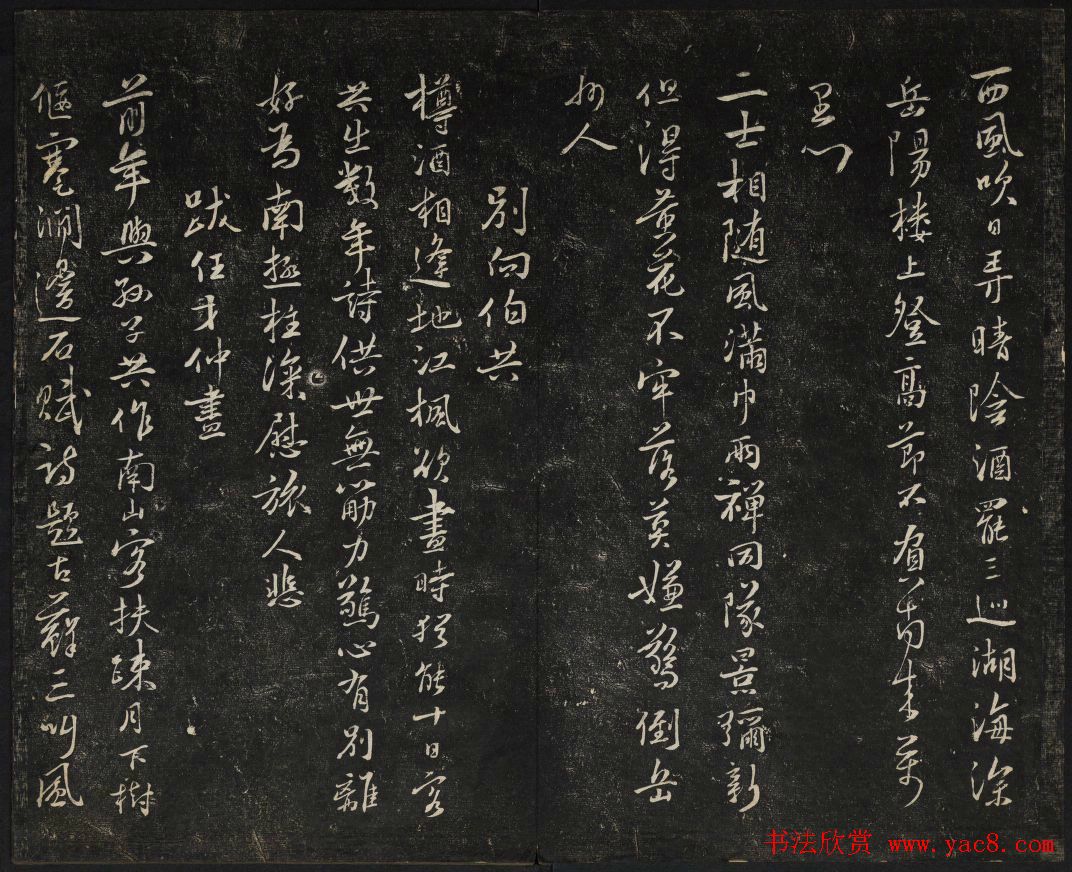 西風吹日弄晴陰酒罷三巡湖海深
岳陽楼上登高節不負南来萬
里心
二士相随風滿巾兩禪同隊景彌新
但得黄花不牢落莫嫌驚倒岳
州人
別向伯共
樽酒相逢地江楓欲盡時猶能十日客
共出數年詩供世無筋力驚心有別離
好為南極柱深慰旅人悲
跋任才仲畫
前年與孫子共作南山客扶疎月下樹
偃蹇澗邊石賦詩題古蘚三叫風
书法欣赏 www.yac8.com